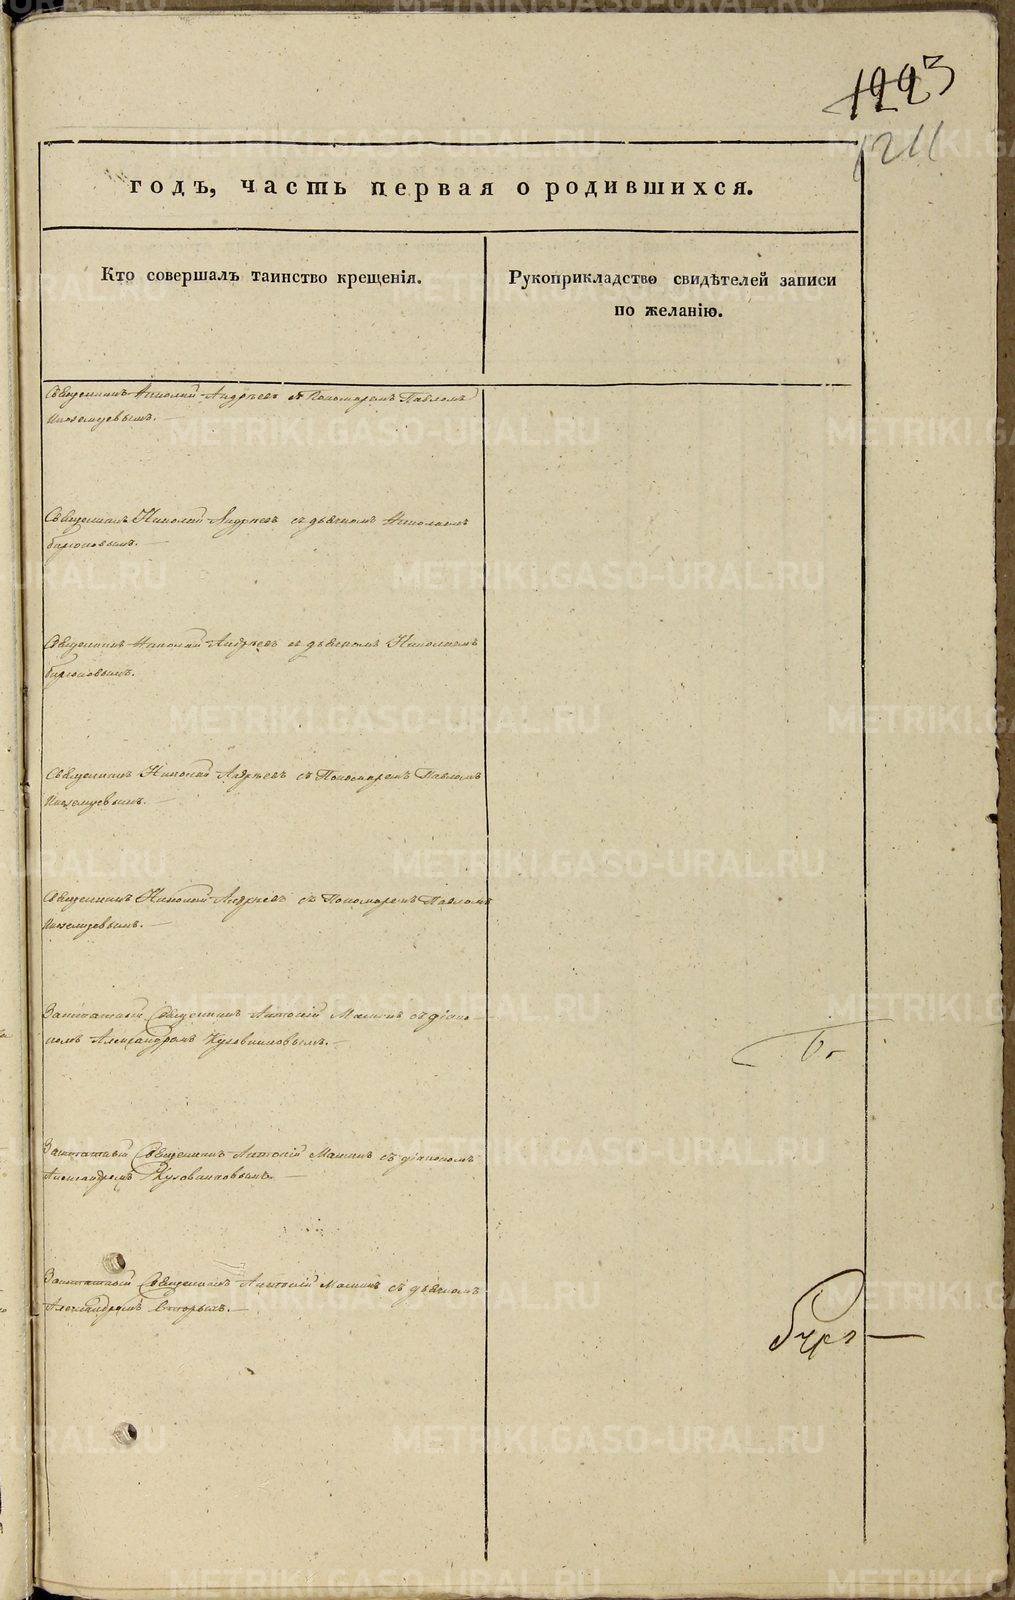 1223
1211
годъ, часть первая о родившихся.
Кто совершалъ таинство крещенія.
Рукоприкладство свидѣтелей записи
по желанію.
Священникъ Николай Андреевъ съ Пономаремъ Павломъ
Иноземцевымъ.
Священникъ Николай Андреевъ съ дьячкомъ Николаемъ
Священникъ Николай Андреевъ съ дьячкомъ Николаемъ
Священникъ Николай Андреевъ съ Пономаремъ Павломъ
Иноземцевымъ.
Священникъ Николай Андреевъ съ Пономаремъ Павломъ
Иноземцевымъ.
Заштатный Священникъ Антоній Маминъ съ діако-
номъ Александромъ Кузовниковымъ.
Заштатный Священникъ Антоній Маминъ съ діакономъ
Александромъ Кузовниковымъ.
Заштатный Священникъ Антоній Маминъ съ дьячкомъ
Александромъ Вторыхъ.
METRIKI.GASO-URAL.RU